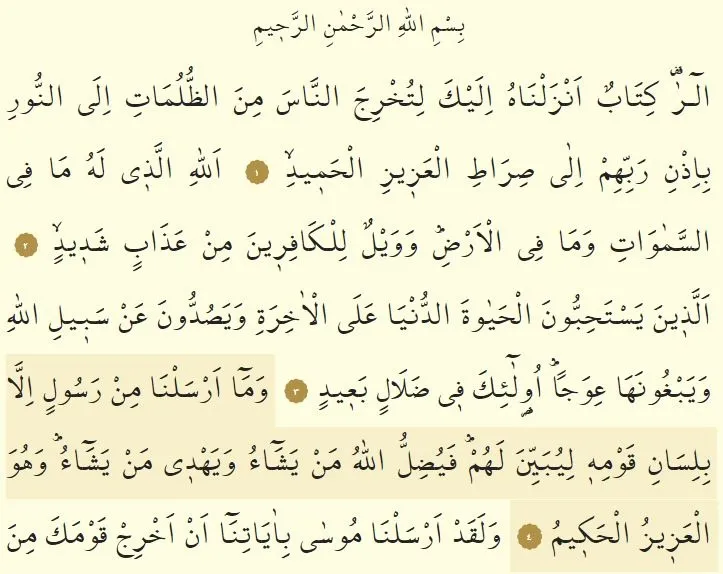 بِسْمِ اللهِ الرَّحْمٰنِ الرَّحٖيمِ
الٓـرٰ۠ كِتَابٌ اَنْزَلْنَاهُ اِلَيْكَ لِتُخْرِجَ النَّاسَ مِنَ الظُّلُمَاتِ اِلَى النُّورِ
بِاِذْنِ رَبِّهِمْ اِلٰى صِرَاطِ الْعَزٖيزِ الْحَمٖيدِۙ ١ اَللهِ الَّذٖى لَهُ مَا فِى
السَّمٰوَاتِ وَمَا فِى الْاَرْضِؕ وَوَيْلٌ لِلْكَافِرٖينَ مِنْ عَذَابٍ شَدٖيدٍۙ ٢
اَلَّذٖينَ يَسْتَحِبُّونَ الْحَيٰوةَ الدُّنْيَا عَلَى الْاٰخِرَةِ وَيَصُدُّونَ عَنْ سَبٖيلِ اللهِ
وَيَبْغُونَهَا عِوَجًاؕ اُو۬لٰٓئِكَ فٖى ضَلَالٍ بَعٖيدٍ ٣ وَمَٓا اَرْسَلْنَا مِنْ رَسُولٍ اِلَّا
بِلِسَانِ قَوْمِهٖ لِيُبَيِّنَ لَهُمْؕ فَيُضِلُّ اللهُ مَنْ يَشَٓاءُ وَيَهْدٖى مَنْ يَشَٓاءُؕ وَهُوَ
الْعَزٖيزُ الْحَكٖيمُ ٤ وَلَقَدْ اَرْسَلْنَا مُوسٰى بِاٰيَاتِنَٓا اَنْ اَخْرِجْ قَوْمَكَ مِنَ